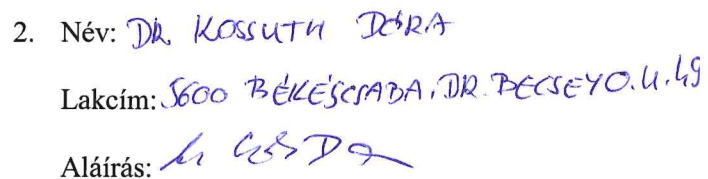 2. Név: DR. KOSSUTH DÓRA
Lakcím: 5600 BÉKÉSCSABA, DR. BECSEY O. U. 49
Aláírás: